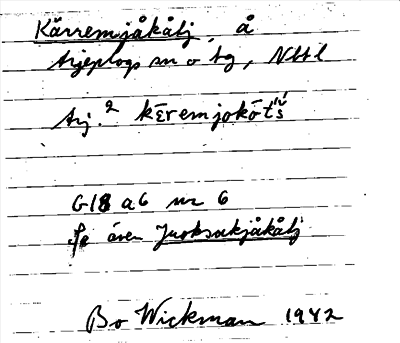 Kärremjåkåtj, å
Arjeplogs sn o tg, Nbtl
Arj. 2 kēremjokōt́š
G18 a6 nr 6
Se även Juoksakjåkåtj
Bo Wickman 1942